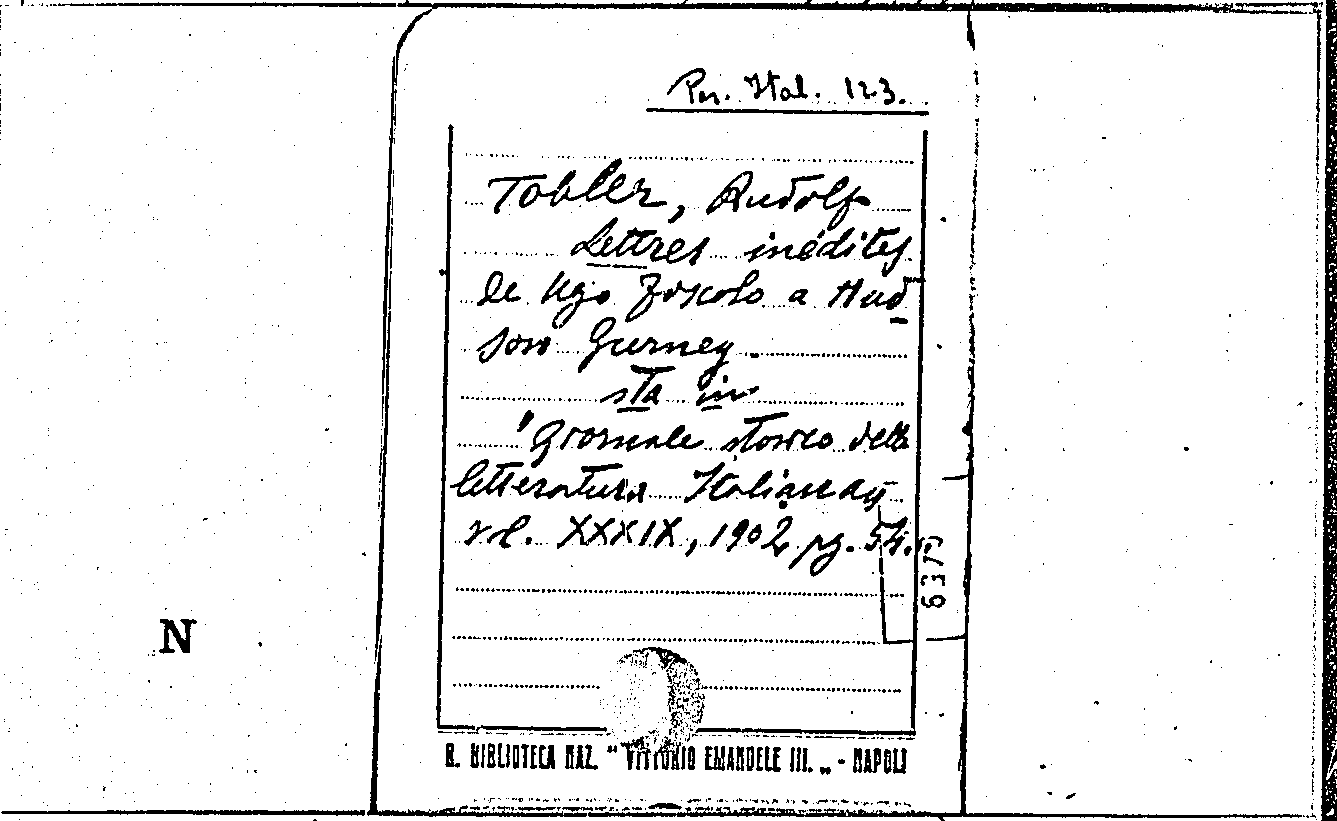 Per. Ital. 123.
Tobler, Rudolf
Lettres inédites
de Ugo Foscolo a Hud
son Gurney.
sta in
"Giornale storico della
letteratura Italiana„
vol. XXXIX, 1902 pg. 54.
6379
N
R. BIBLIOTECA NAZ. “ VITTORIO EMANUELE III. „ - NAPOLI